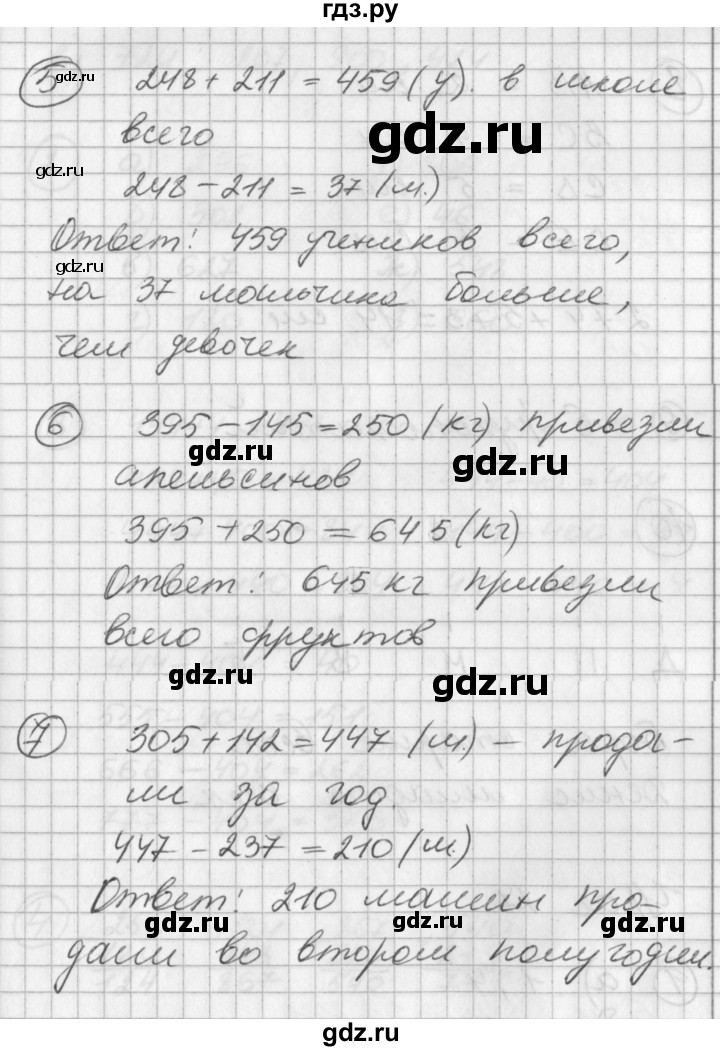 гдз.ру
5 248 + 211 = 459 (у). в школе
gdz.ru
gdz.ru
всего
gdz.ru
248 - 211 = 37 (м.)
Ответ: 459 учеников всего,
gdz.ru
на 37 мальчика больше,
чем девочек
6 395 - 145 = 250 (кг) привезли
gdz.ru
gdz.ru
апельсинов
395 + 250 = 645 (кг)
Ответ: 645 кг привезли
всего фруктов
gdz.ru
gdz.ru
7 305 + 142 = 447 (м.) - прода-
ли за год.
447 - 237 = 210 (м.)
Ответ: 210 машин про-
gdz.ru
gdz.ru
дали во втором полугодии.
gdz.ru